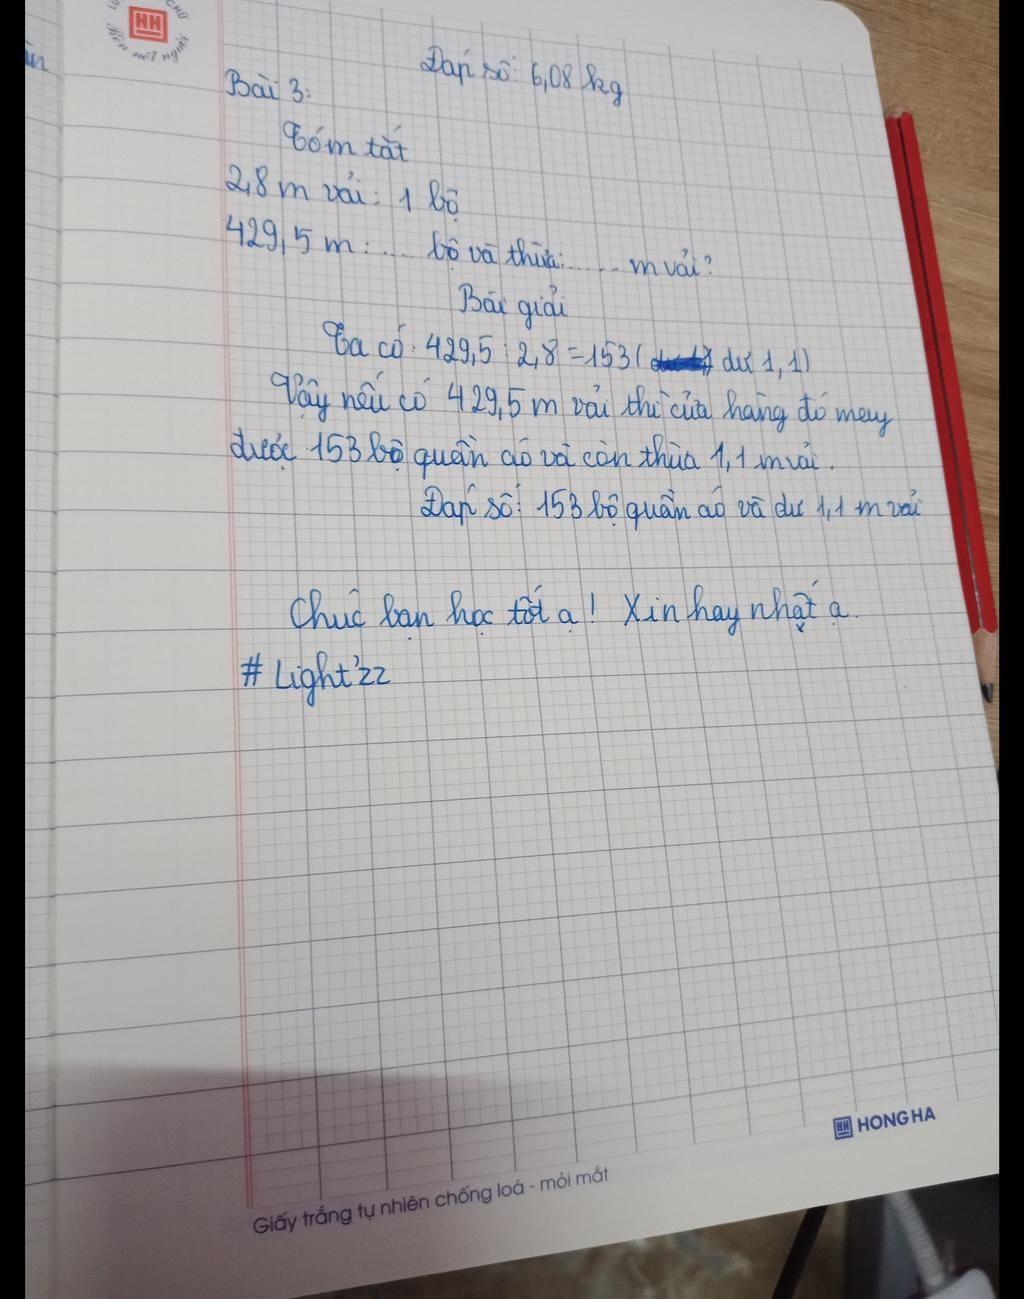 HH
Đáp số: 6,08 kg
Bài 3:
Tóm tắt
2,8 m vải: 1 bộ
429,5 m: ... bộ và thừa: ..... m vải?
Bài giải
Ta có: 429,5 : 2,8 = 153 ( dư 1,1)
Vậy nếu có 429,5 m vải thì cửa hàng đó may
được 153 bộ quần áo và còn thừa 1,1 m vải.
Đáp số: 153 bộ quần áo và dư 1,1 m vải
Chúc bạn học tốt ạ! Xin hay nhất ạ.
# Light'zz
HH HONG HA
Giấy trắng tự nhiên chống loá - mỏi mắt